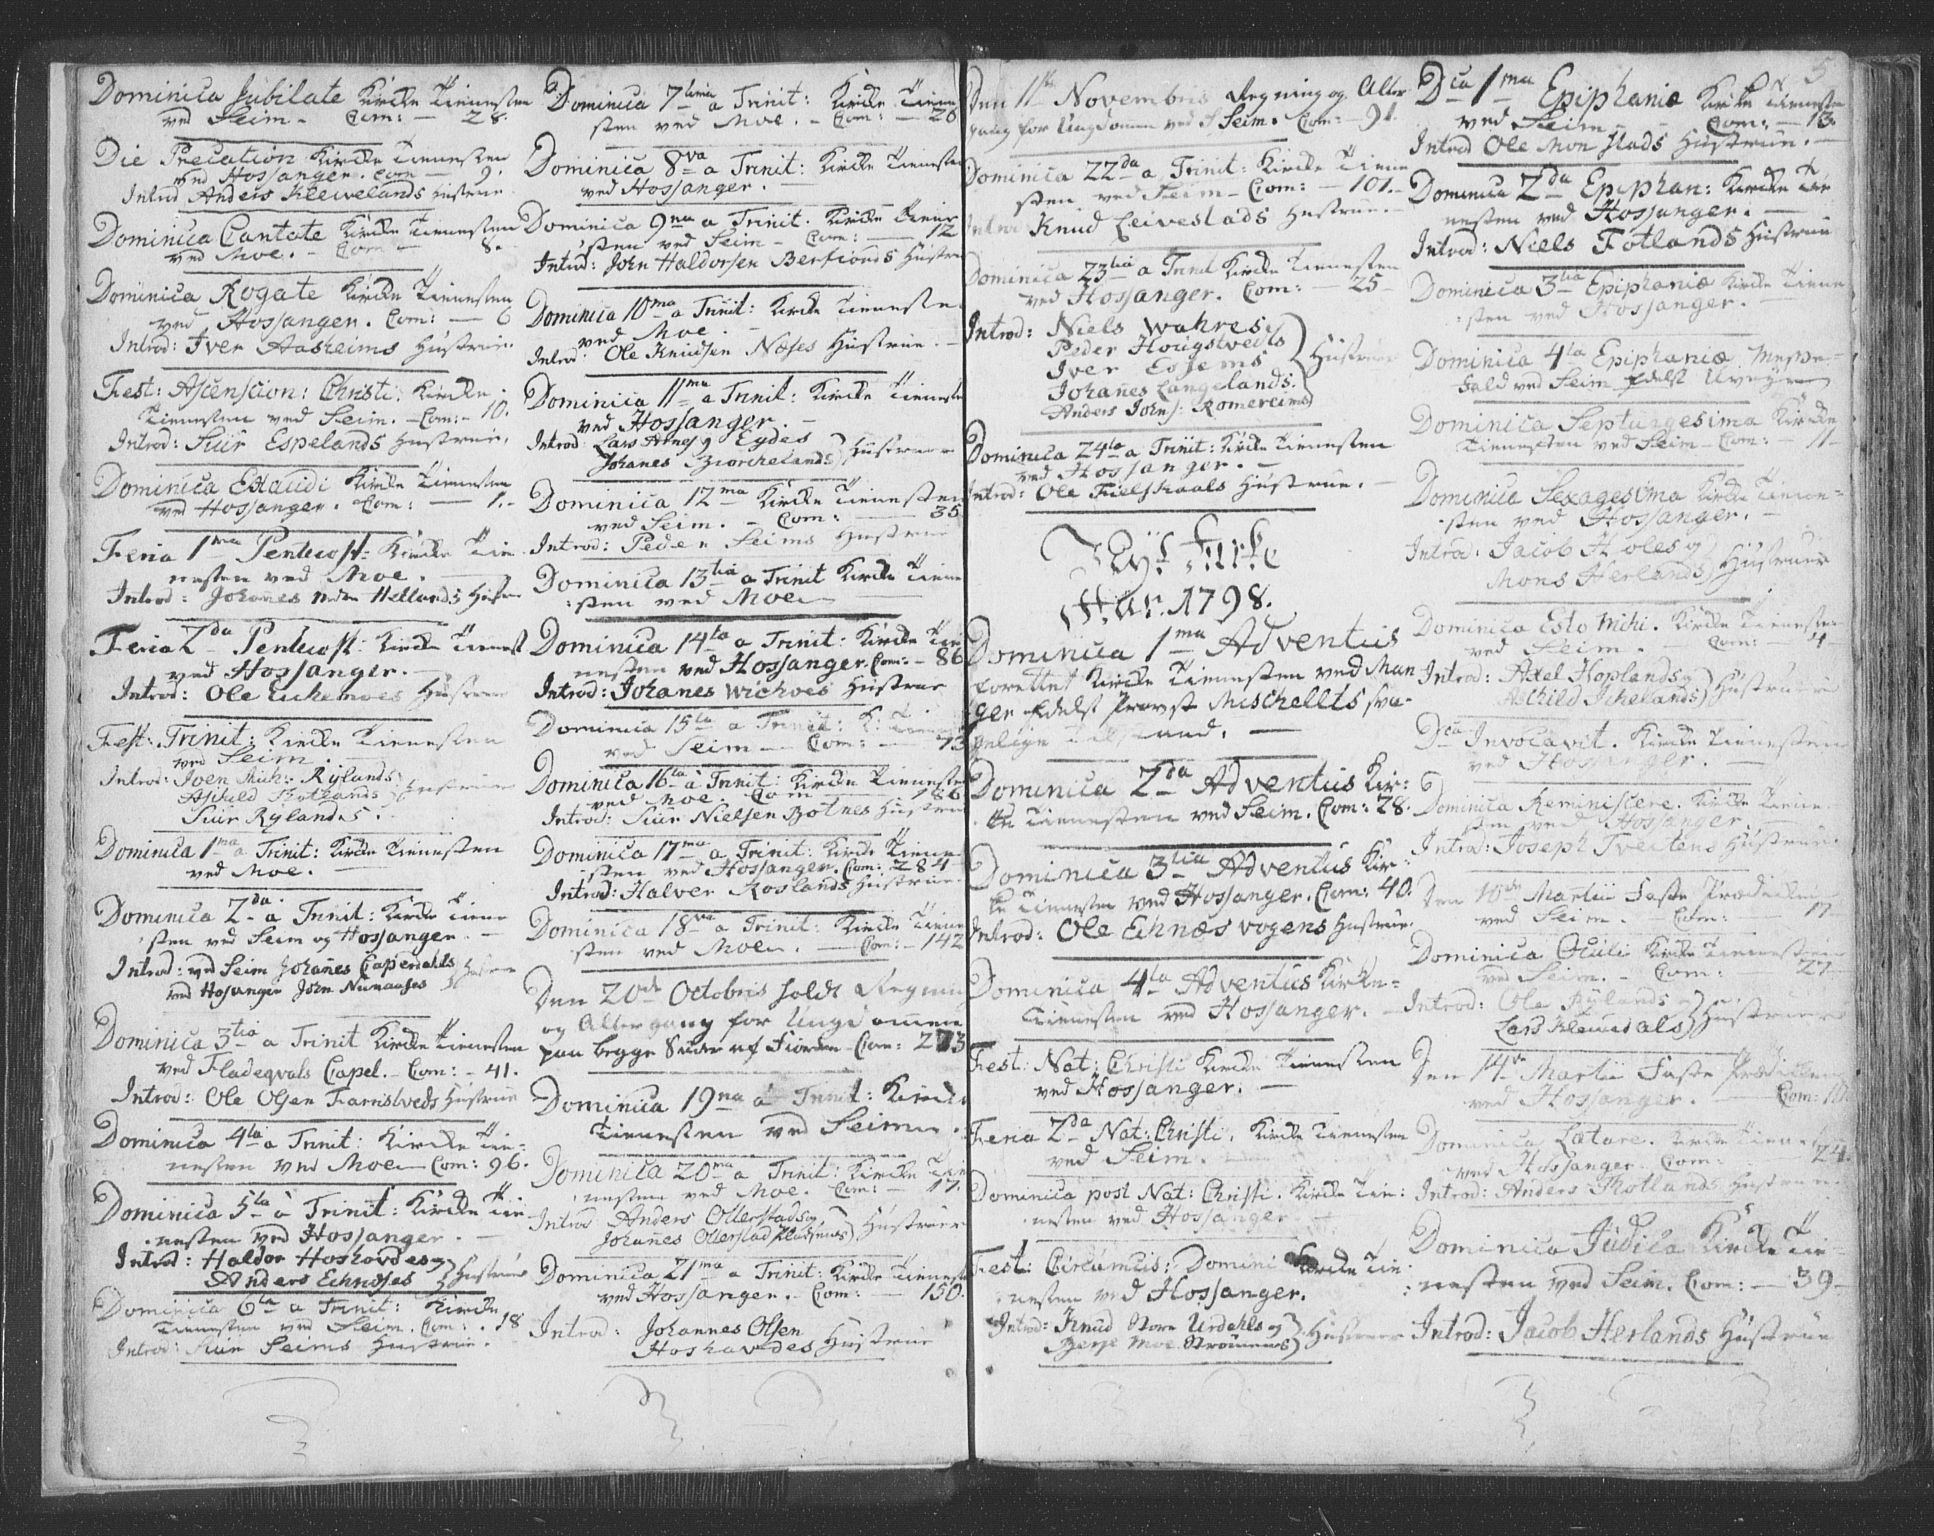 Dominica Jubilate Kircke Tienesten
ved Seim - Com: - 28.
Die Precation Kircke Tienesten
ved Hossanger. Com - 9.
Introd Anders Kleivelands Hustrue
Dominica Cantate Kircke Tienesten
ved Moe. - Com - 8.
Dominica Rogate Kircke Tienesten
ved Hossanger. Com: - 6
Introd: Iver Aasheims Hustrue
Fest: Ascenscion: Christi: Kircke
Tienesten ved Seim. - Com: - 10.
Introd: Siur Espelands Hustrue.
Dominica Exaudi Kircke Tienesten
ved Hossanger. Com: - 1.
Feria 1ma Pentecost: Kircke Tie
nesten ved Moe.
Introd: Johanes Hellands Hustrue
Feria 2da Pentecost: Kircke Tienest
ved Hossanger.
Introd: Ole Hustrue
Fest: Trinit: Kircke Tienesten
ved Seim.
Introd: Joen Mich: Rylands
Askild Hustruer
Siur Rylands.
Dominica 1ma a Trinit: Kircke Tienesten
ved Moe.
Dominica 2da a Trinit: Kircke Tiene
sten ved Seim og Hossanger.
Introd: ved Seim Johanes Hustruer
ved Hosanger John
Dominica 3tia a Trinit Kircke Tienesten
ved Fladeqvals Capel. - Com: - 41.
Introd: Ole Olsen Farnistveds Hustrue
Dominica 4ta a Trinit: Kircke Tie-
nesten ved Moe Com: 96.
Dominica 5ta a Trinit: Kircke Tie
nesten ved Hossanger.
Introd: Haldor Hoshovdes og
Anders Echnæses Hustruer
Dominica 6ta a Trinit: Kircke
Tienesten ved Seim. Com: . 18
Introd: Siur Seims Hustrue.
Dominica 7tima a Trinit: Kircke Tiene
sten ved Moe. - Com: - 26
Dominica 8va a Trinit: Kircke Tienesten
ved Hossanger.
Dominica 9na a Trinit. Kircke Tiene
sten ved Seim - Com: - 12
Introd: John Haldorsen Hustrue
Dominica 10ma a Trinit: Kircke Tieneste
ved Moe.
Introd: Ole Knudsen Næses Hustrue.
Dominica 11ma a Trinit: Kircke Tieneste
ved Hossanger.
Introd: Lars og Eydes
Johanes Hustruer
Dominica 12ma Kircke Tienesten
ved Seim. - Com: 35
Introd: Peder Seims Hustrue
Dominica 13tia a Trinit Kircke Tiene
sten ved Moe
Dominica 14ta a Trinit: Kircke Tie
nesten ved Hossanger. Com: - 86
Introd: Johanes Hustrue
Dominica 15ta a Trinit: K: Tienesten
ved Seim - Com: - 73
Dominica 16ta a Trinit: Kircke Tienesten
ved Moe. Com 186
Introd: Siur Nielsen Botnes Hustrue
Dominica 17ma a Trinit: Kircke Tiene
sten ved Hossanger. Com: - 284
Introd: Halver Roslands Hustrue.
Dominica 18va a Trinit: Kircke Tiene
sten ved Moe. - Com: - 142
Den 20de Octobris holdt Regning
og Altergang for Ungdommen
paa begge Sider af Fiorden Com: 273
Dominica 19na a Trinit: Kircke
Tienesten ved Seim.
Dominica 20ma a Trinit: Kircke Tie
nesten ved Moe. Com: - 17.
Introd Anders Ollerstads og
Johanes Ollerstad Hustruer
Dominica 21ma a Trinit: Kircke Tieneste
ved Hossanger. - Com: - 150.
Introd: Johannes Olsen
Hoshovdes Hustrue
5
Den 11te Novembris Regning og Alter
gang for Ungdomen ved Seim. Com: - 91.
Dominica 22da a Trinit: Kircke Tiene
sten ved Seim - Com: - 101.
Introd Knud Leivestads Hustrue.
Dominica 23tia a Trinit Kircke Tienesten
ved Hossanger. Com: - 25
Introd: Niels Wahres
Peder Hougstvedts
Iver Esjems Hustruer
Johanes Langelands.
Anders Johns: Romereims
Dominica 24ta a Trinit: Kircke Tienesten
ved Hossanger.
Introd: Ole Hustrue.
Nyt Kirke
Aar. 1798.
Dominica 1ma Adventus
forettet Kircke Tienesten ved Man
ger Edelst Provst Mischellts sva-
gelige Tilstand.
Dominica 2da Adventus Kir-
ke Tienesten ved Seim. Com: 28.
Dominica 3tia Adventus Kir-
ke Tienesten ved Hossanger. Com: 40.
Introd: Ole Echnæs vogens Hustrue.
Dominica 4ta Adventus Kirke-
Tienesten ved Hossanger.
Fest: Nat: Christi Kircke Tienesten
ved Hossanger.
Feria 2da Nat: Christi. Kircke Tienesten
ved Seim.
Dominica post Nat: Christi. Kircke Tie:
nesten ved Hossanger
Fest: Circumcis: Domini Kircke Tie
nesten ved Hossanger.
Introd: Knud Store Urdahls og
Børge Moe Strømmes Hustruer
Dca 1ma Epiphaniæ Kircke Tienesten
ved Seim - Com: - 13.
Introd Ole Monstads Hustrue.
Dominica 2da Epiphan: Kircke Tie
nesten ved Hossanger.
Introd: Niels Fotlands Hustrue
Dominica 3tia Epiphaniæ Kircke Tiene
sten ved Hossanger.
Dominica 4ta Epiphaniæ Messe-
Fald ved Seim Edelst Uveyr
Dominica Septuagesima Kircke
Tienesten ved Seim - Com: - 11
Dominica Sexagesima Kircke Tiene-
sten ved Hossanger.
Introd: Jacob Holes og
Mons Herlands Hustruer
Dominica Esto Mihi. Kircke Tienesten
ved Seim. - Com: 4
Introd: Axel Hoplands og
Aschild Ichelands Hustruer
Dca Invocavit. Kircke Tienesten
ved Hossanger.
Dominica Reminiscere. Kircke Tiene
sten ved Hossanger.
Introd: Joseph Tveitens Hustrue.
Den 10de Martii Faste Prædicken
ved Seim. - Com: 17
Dominica Oculi Kircke Tienesten
ved Seim. - Com: 27.
Introd: Ole Rylands og
Lars Hustruer
Den 14de Martii Faste Prædicken
ved Hossanger. Com:
Dominica Lætare. Kircke Tienesten
ved Hossanger Com: 24.
Introd: Anders Hustrue.
Dominica Judica Kircke Tie-
nesten ved Seim. Com: - 39
Introd: Jacob Herlands Hustrue